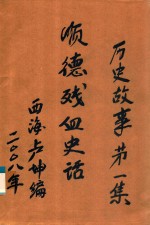 历史故事第一集
顺德残血史话
西海卢坤编
二〇〇八年